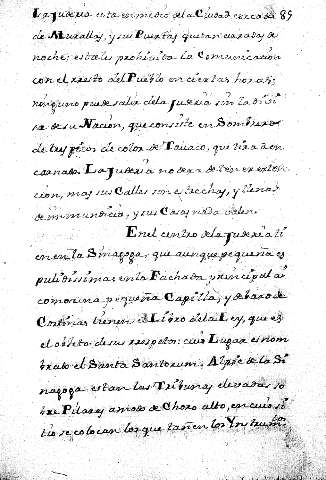 La Juderia esta en medio de la Ciudad cercada 89
de Murallas, y sus Puertas quedan cerradas de
noche; estales prohivita la Comunicacion
con el resto del Pueblo en ciertas horas;
ninguno puede salir dela Juderia sin la divi
sa de su Nacion, que consiste en Sombrero
de tres picos de color de Tavaco, que tira a en
carnado. La Juderia no dexa de tener exten
cion, mas sus Calles son estrechas, y llenas
de inmundicia, y sus Casas nada valen.
En el centro de la Juderia ti
enen la Sinagoga, que aunque pequeña es
pulidissima; en la Fachata principal ai
como una pequeña Capilla, y debaxo de
Cortinas tienen el Libro de la Ley, que es
el obleto de sus respetos: cuio Lugar es nom
brado el Santa Santorum. Al pie de la Si
nagoga estan las Tribunas elevadas so
bre Pilares a modo de Choro alto, en cuio si
tio se colocan los que tañen los Ynstrumtos